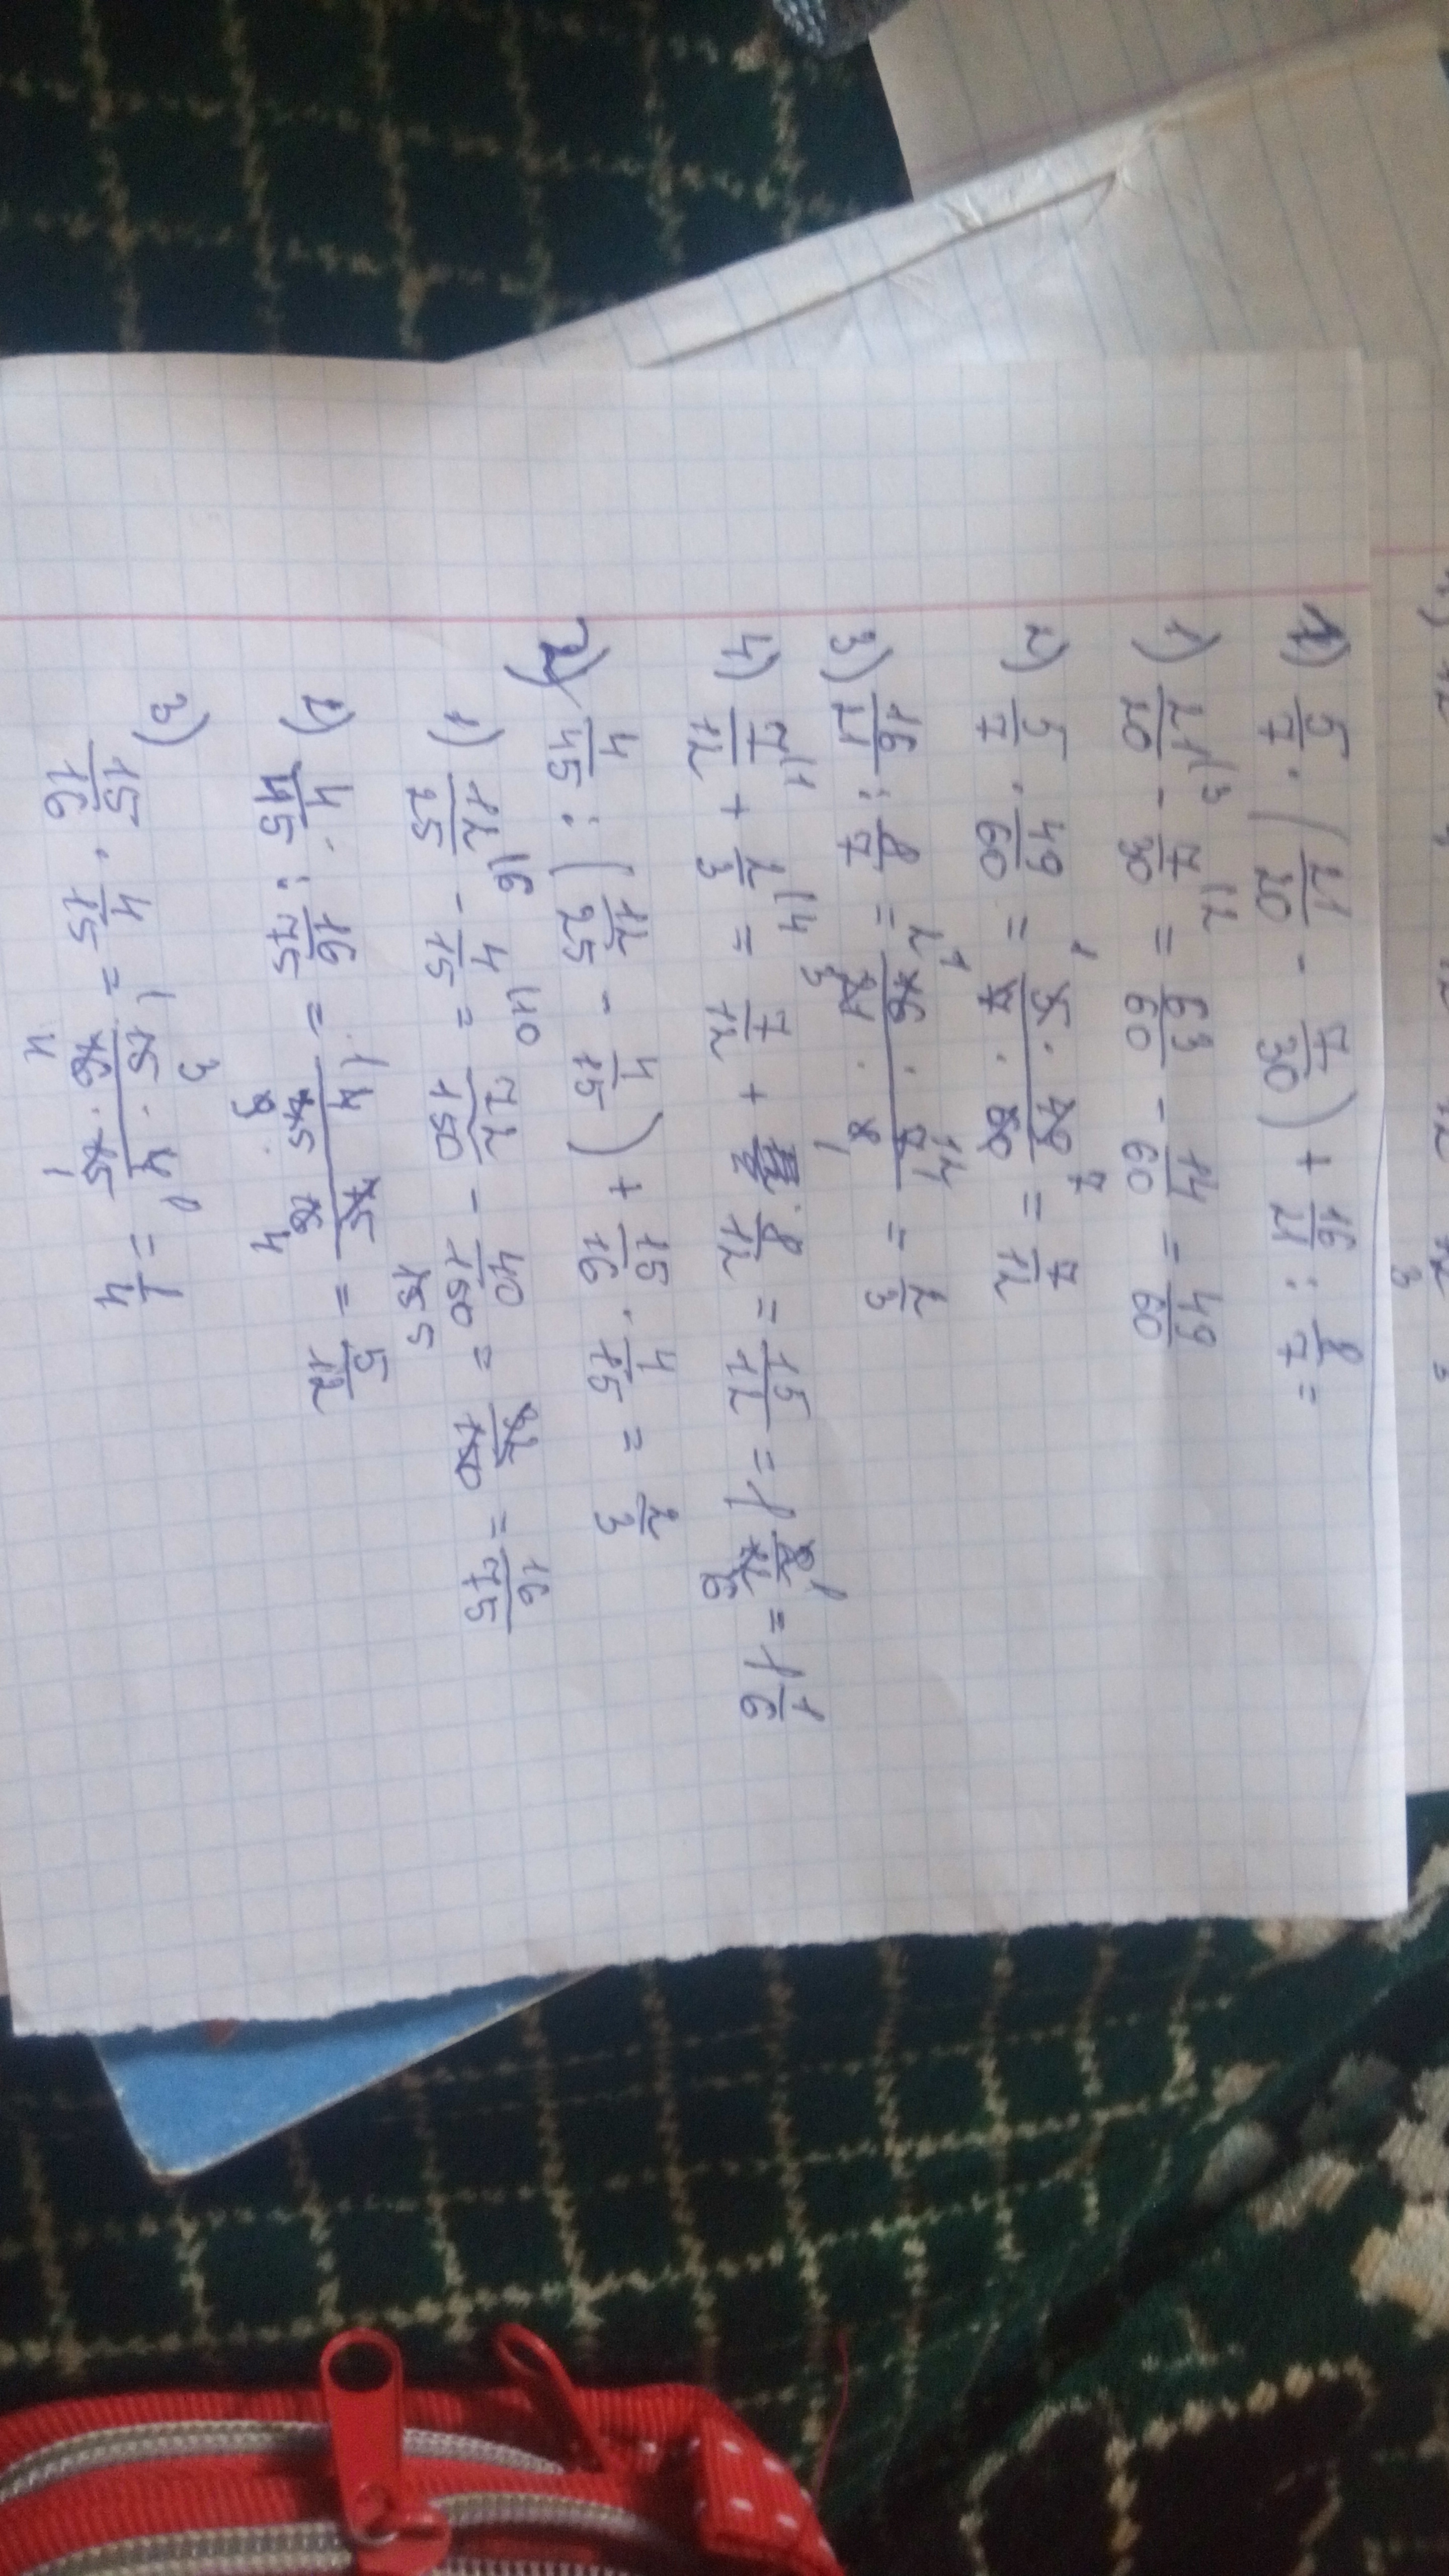 1) 5/7 · (21/20 - 7/30) + 16/21 : 8/7 =
1) 21/20 |3 - 7/30 |2 = 63/60 - 14/60 = 49/60
2) 5/7 · 49/60 = 1 5 · 49 7 / 7 · 60 = 7/12
3) 16/21 : 8/7 = 2 16 · 7 1 / 3 21 · 8 1 = 2/3
4) 7/12 |1 + 2/3 |4 = 7/12 + 8/12 = 15/12 = 1 2/12 1 6 = 1 1/6
2) 4/45 : (12/25 - 4/15) + 15/16 · 4/15 = 2/3
1) 12/25 |6 - 4/15 |10 = 72/150 - 40/150 = = 16/75
2) 4/45 : 16/75 = 1 4 · 75 / 45 · 16 4 = 5/12
3) 15/16 · 4/15 = 1 15 · 4 1 / 16 · 15 1 = 1/4